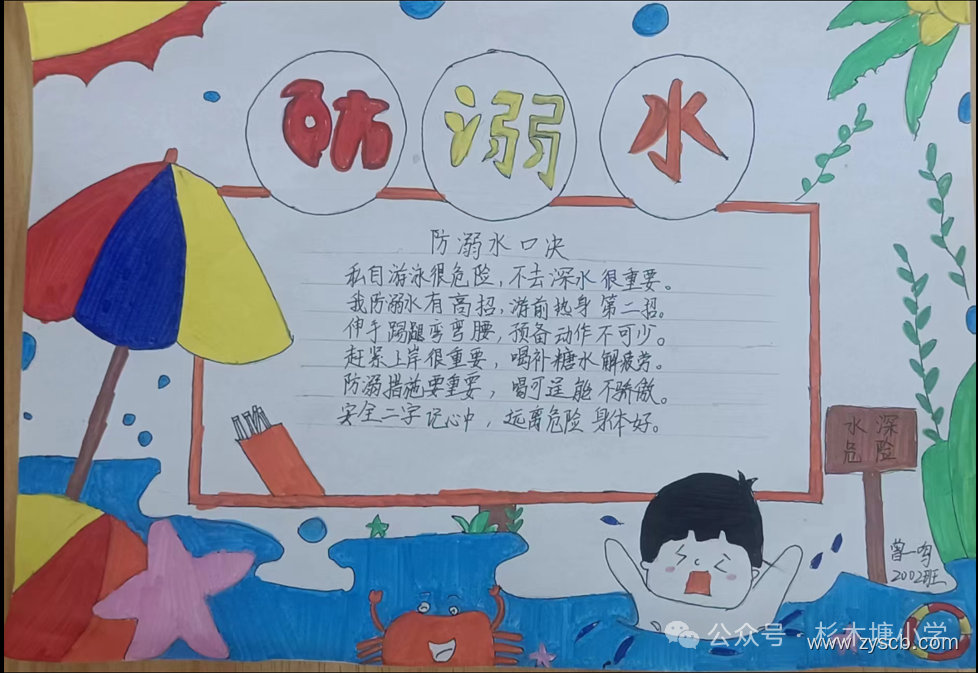 防溺水
防溺水口决
私自游泳很危险，不去深水很重要。
我防溺水有高招，游前热身第二招。
伸手踢腿弯弯腰，预备动作不可少。
赶紧上岸很重要，喝补糖水解疲劳。
防溺措施要重要，喝可逞能不骄傲。
安全二字记心中，远离危险身体好。
水深
危险
2002班
公众号·杉木塘小学
www.zyscb.com